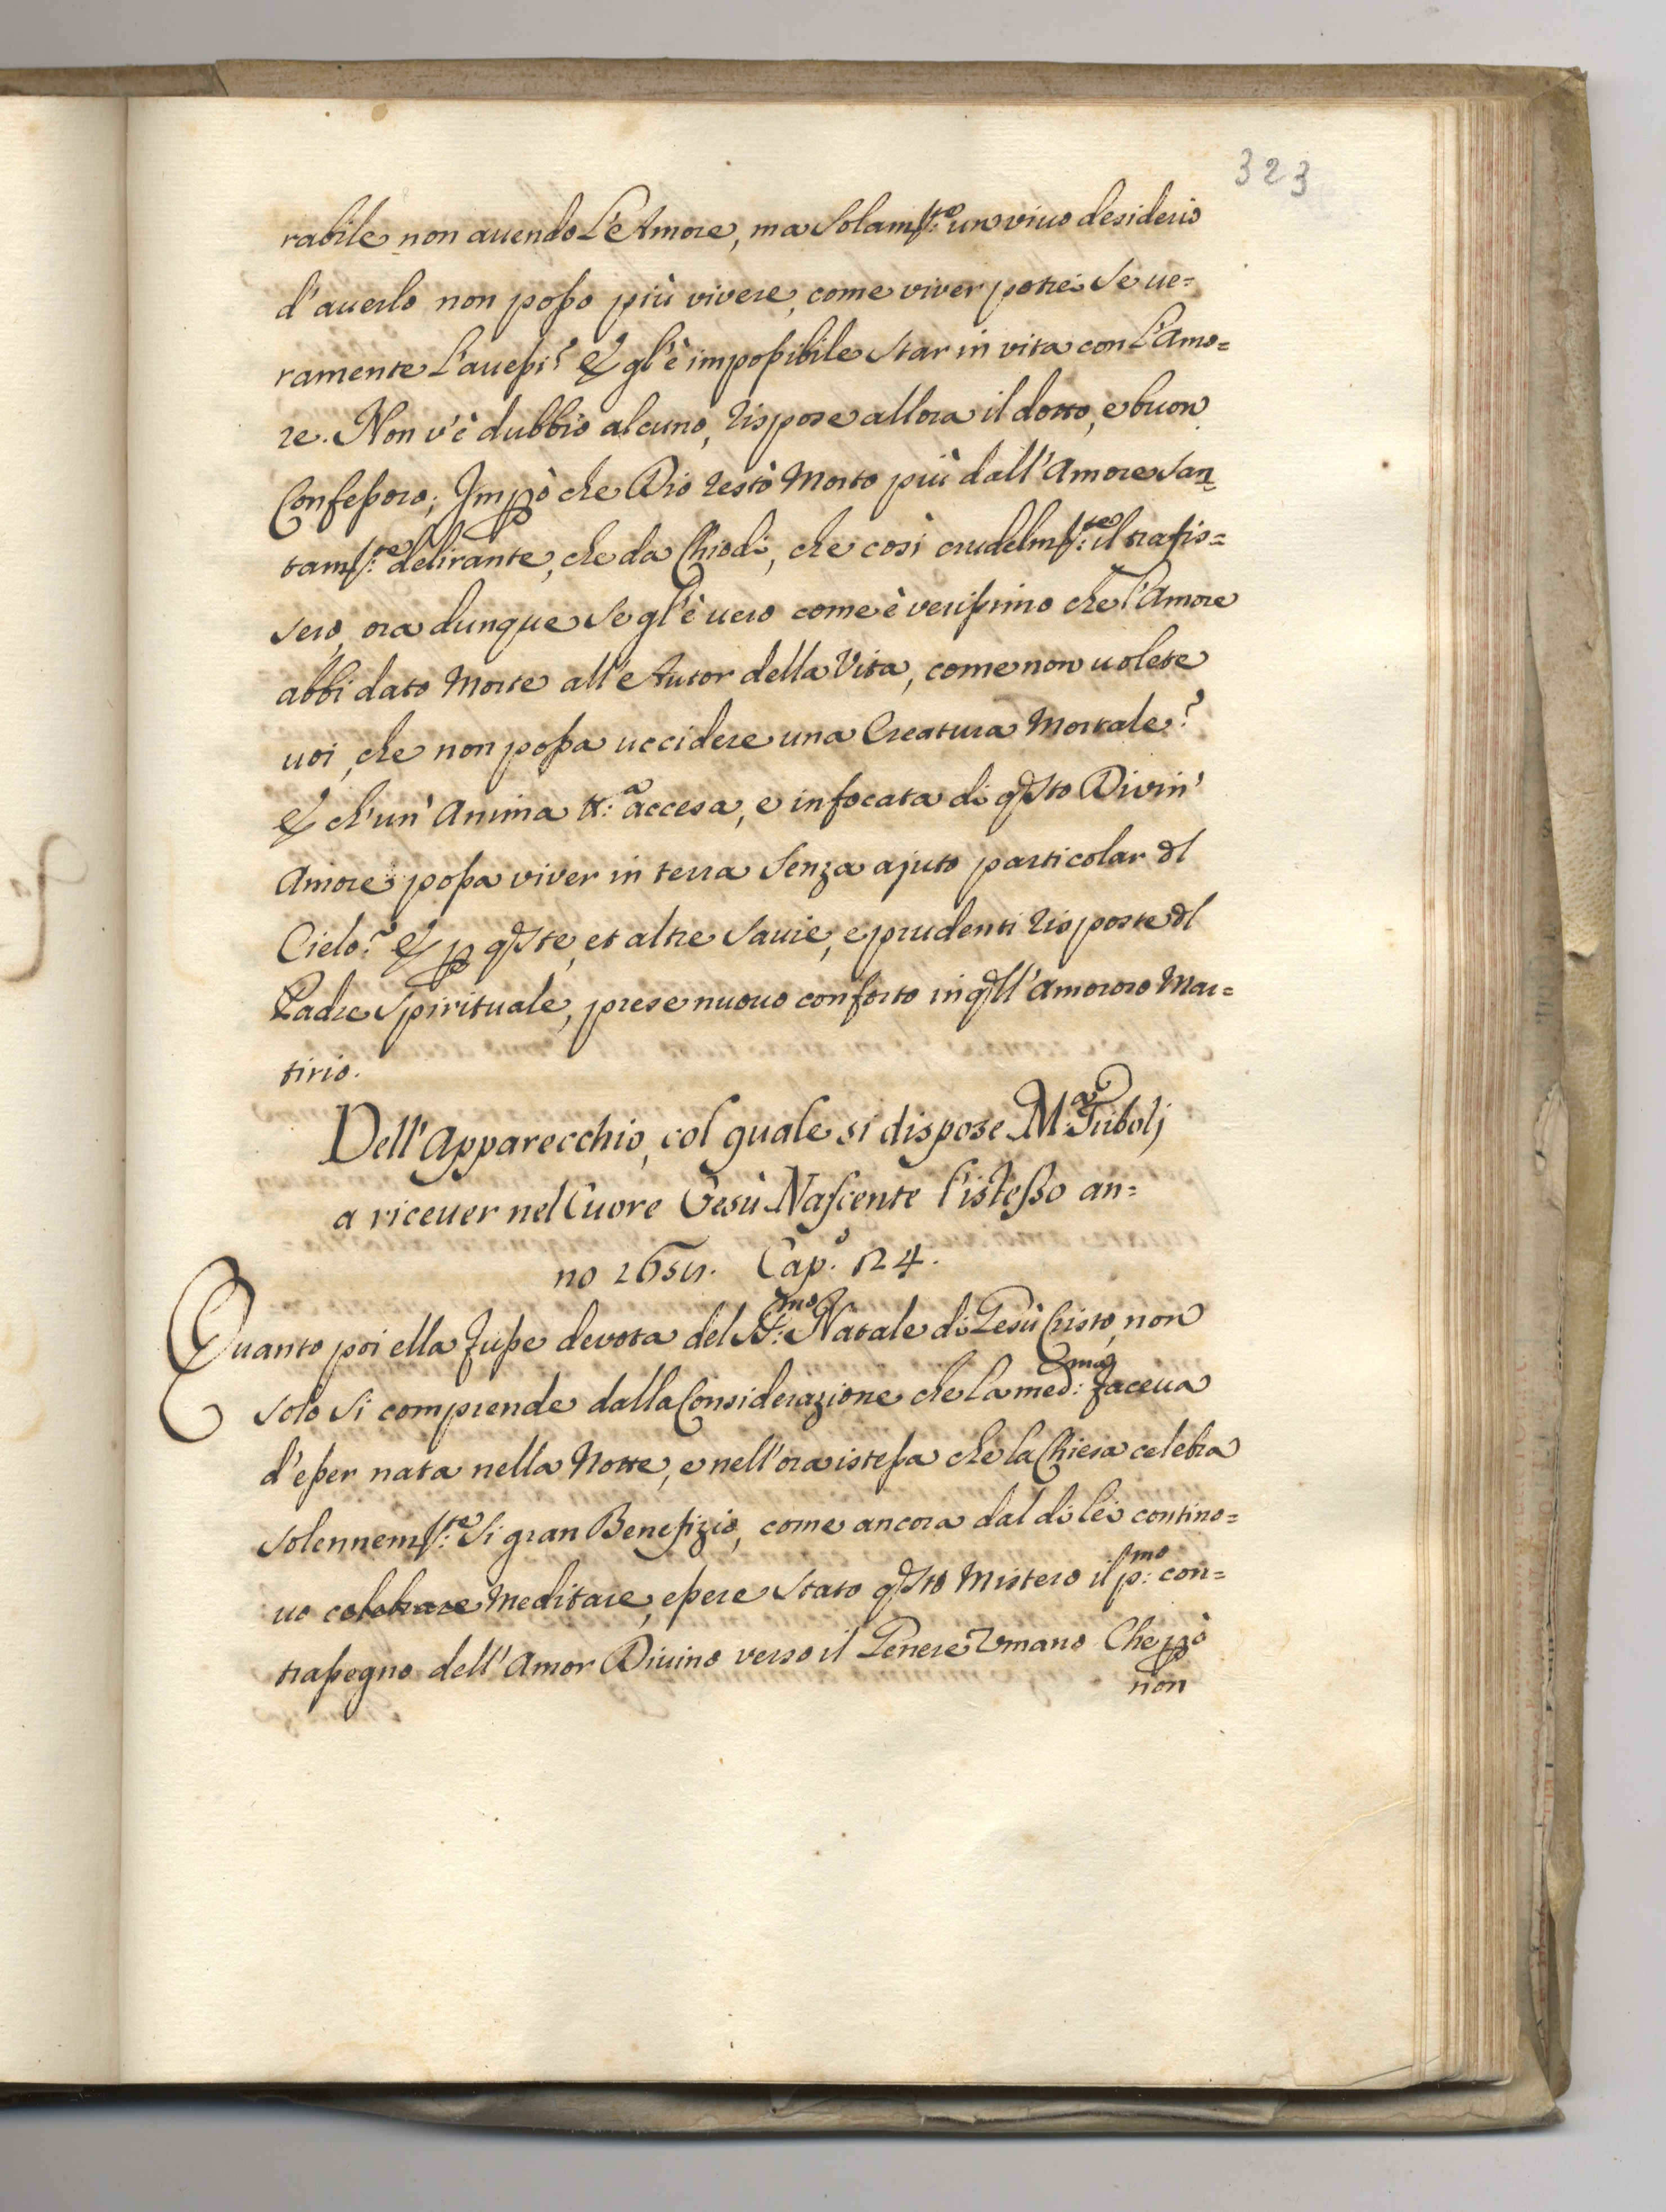 323
rabile non auendo L'Amore, ma Solam.te un viuo desiderio
d'auerlo non posso più vivere, come viver potrei Se ue=
ramente L'auessi? E gl'è impossibile Star in vita con L'Amo=
re. Non v'è dubbio alcuno, rispose allora il dotto, e buon
Confessoro; Imp̱ò che Dio restò Morto più dall'Amore San=
tam.te delirante, che da Chiodi, che così crudelm.te il trafis=
sero, ora dunque Se gl'è uero come è verissimo che l'Amore
abbi dato Morte all'Autor della Vita, come non uolete
uoi, che non possa uccidere una Creatura Mortale?
E ch'un'Anima tt.a accesa, e infocata di qsto Divin'
Amore possa viver in terra Senza ajuto particolar dl
Cielo? E p̱ qste, et altre Sauie, e prudenti risposte dl
Padre Spirituale, prese nuouo conforto in qll'Amoroso Mar=
tirio.
Dell'Apparecchio, col quale si dispose M.a Triboli
a riceuer nel Cuore Gesù Nascente l'istesso an=
no Cap.o 124.
Quanto poi ella fusse devota del SS.mo Natale di Gesù Cristo, non
solo Si comprende dalla Considerazione che la med.ma faceua
d'esser nata nella Notte, e nell'ora istessa che la Chiesa celebra
solennem.te Si gran Benefizio, come ancora dal di lei contino=
uo celebrare Meditare, essere Stato qsto Mistero il p.mo con=
trassegno dell'Amor Diuino verso il Genere Vmano Che p̱ò
non